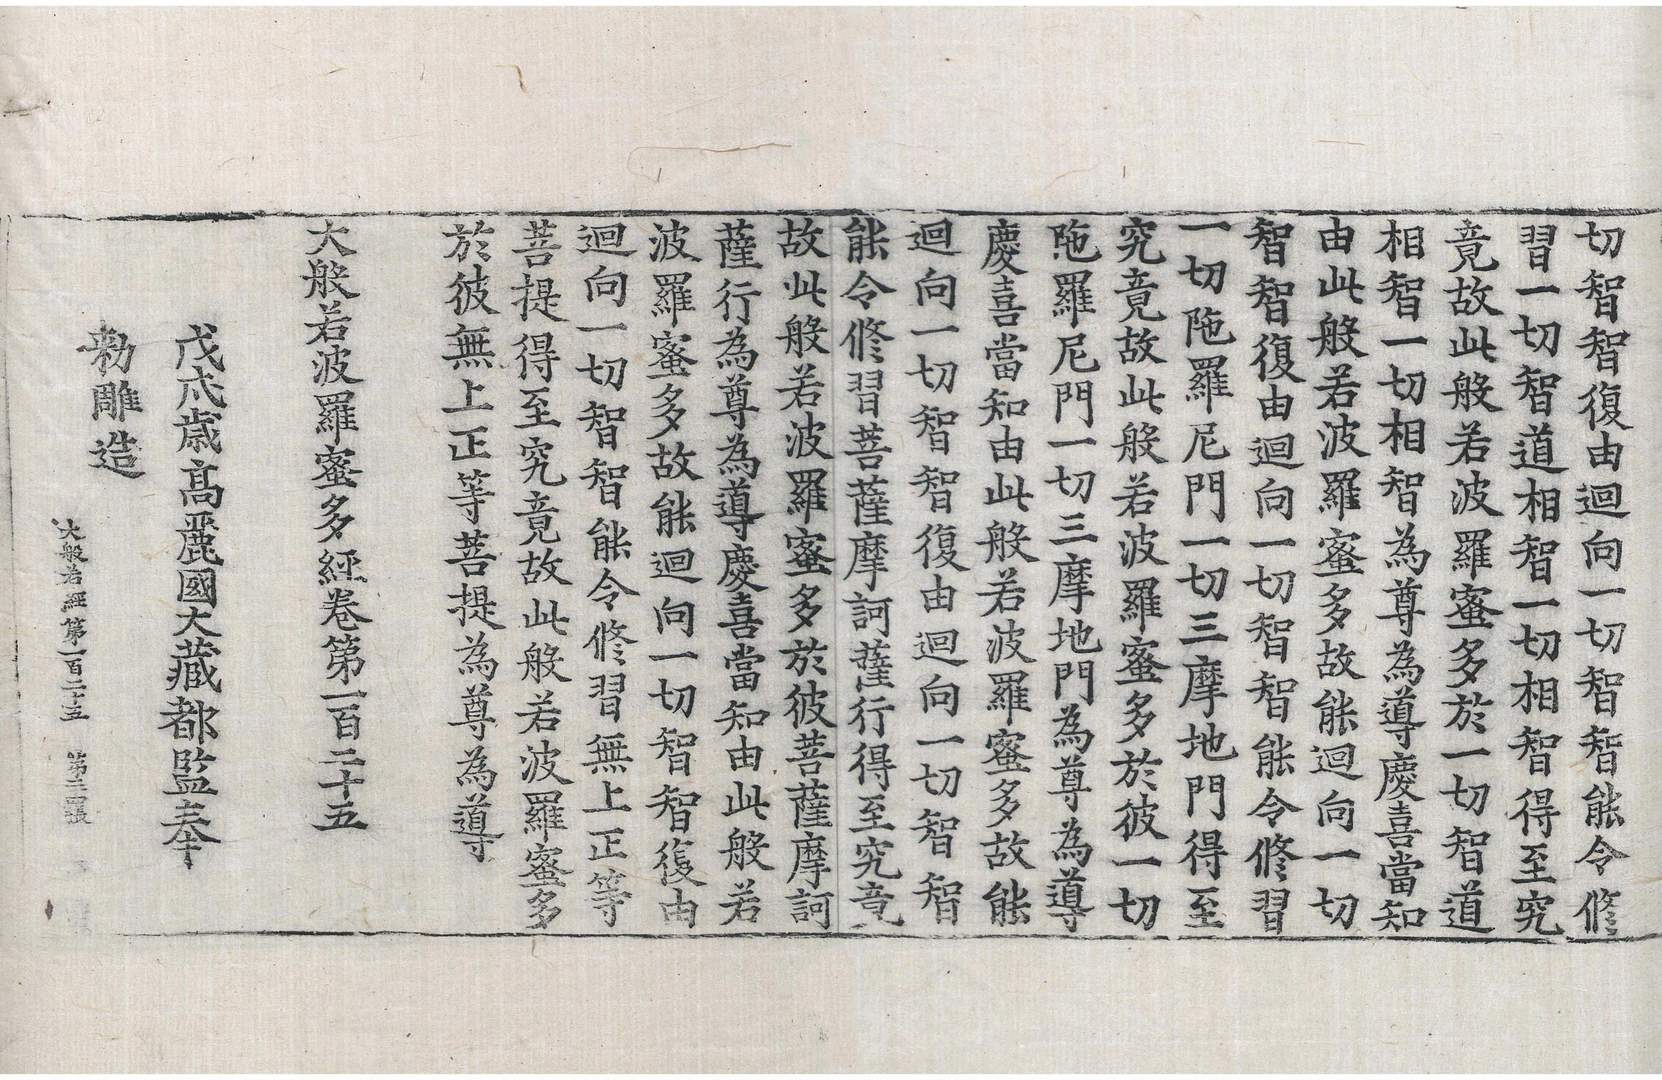 切智智復由迴向一切智智能令修
習一切智道相智一切相智得至究
竟故此般若波羅蜜多於一切智道
相智一切相智為尊為導慶喜當知
由此般若波羅蜜多故能迴向一切
智智復由迴向一切智智能令修習
一切陁羅尼門一切三摩地門得至
究竟故此般若波羅蜜多於彼一切
陁羅尼門一切三摩地門為尊為導
慶喜當知由此般若波羅蜜多故能
迴向一切智智復由迴向一切智智
能令修習菩薩摩訶薩行得至究竟
故此般若波羅蜜多於彼菩薩摩訶
薩行為尊為導慶喜當知由此般若
波羅蜜多故能迴向一切智智復由
迴向一切智智能令修習無上正等
菩提得至究竟故此般若波羅蜜多
於彼無上正等菩提為尊為導
大般若波羅蜜多經卷第一百二十五
戊戌歲高麗國大藏都監奉
勅雕造
大般若經第一百二十五 第二四張